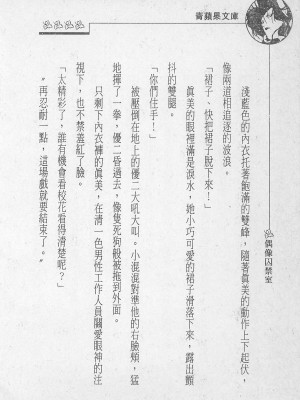 青蘋果文庫
偶像囚禁室
淺藍色的內衣托著飽滿的雙峰,隨著真美的動作上下起伏,
像兩道相追逐的波浪。
「裙子、快把裙子脫下來!」
真美的眼裡滿是淚水,她小巧可愛的裙子滑落下來,露出顫
抖的雙腿。
「你們住手!」
被壓倒在地上的優二大吼大叫。小混混對準他的右臉頰,猛
地揮了一拳,優二昏過去,像隻死狗般被拖到外面。
只剩下內衣褲的真美,在清一色男性工作人員關愛眼神的注
視下,也不禁羞紅了臉。
「太精彩了,誰有機會看校花看得清楚呢?」
〝再忍耐一點,這場戲就要結束了。〞